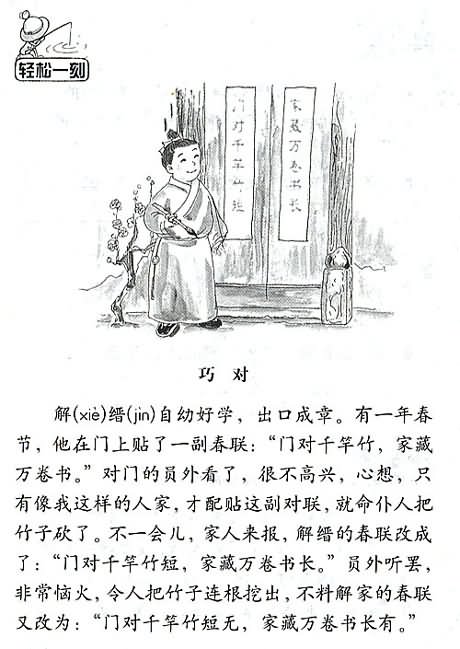 轻松一刻
家藏万卷书长
门对千竿竹短
巧对
解(xiè)缙(jìn)自幼好学，出口成章。有一年春
节，他在门上贴了一副春联：“门对千竿竹，家藏
万卷书。”对门的员外看了，很不高兴，心想，只
有像我这样的人家，才配贴这副对联，就命仆人把
竹子砍了。不一会儿，家人来报，解缙的春联改成
了：“门对千竿竹短，家藏万卷书长。”员外听罢，
非常恼火，令人把竹子连根挖出，不料解家的春联
又改为：“门对千竿竹短无，家藏万卷书长有。”